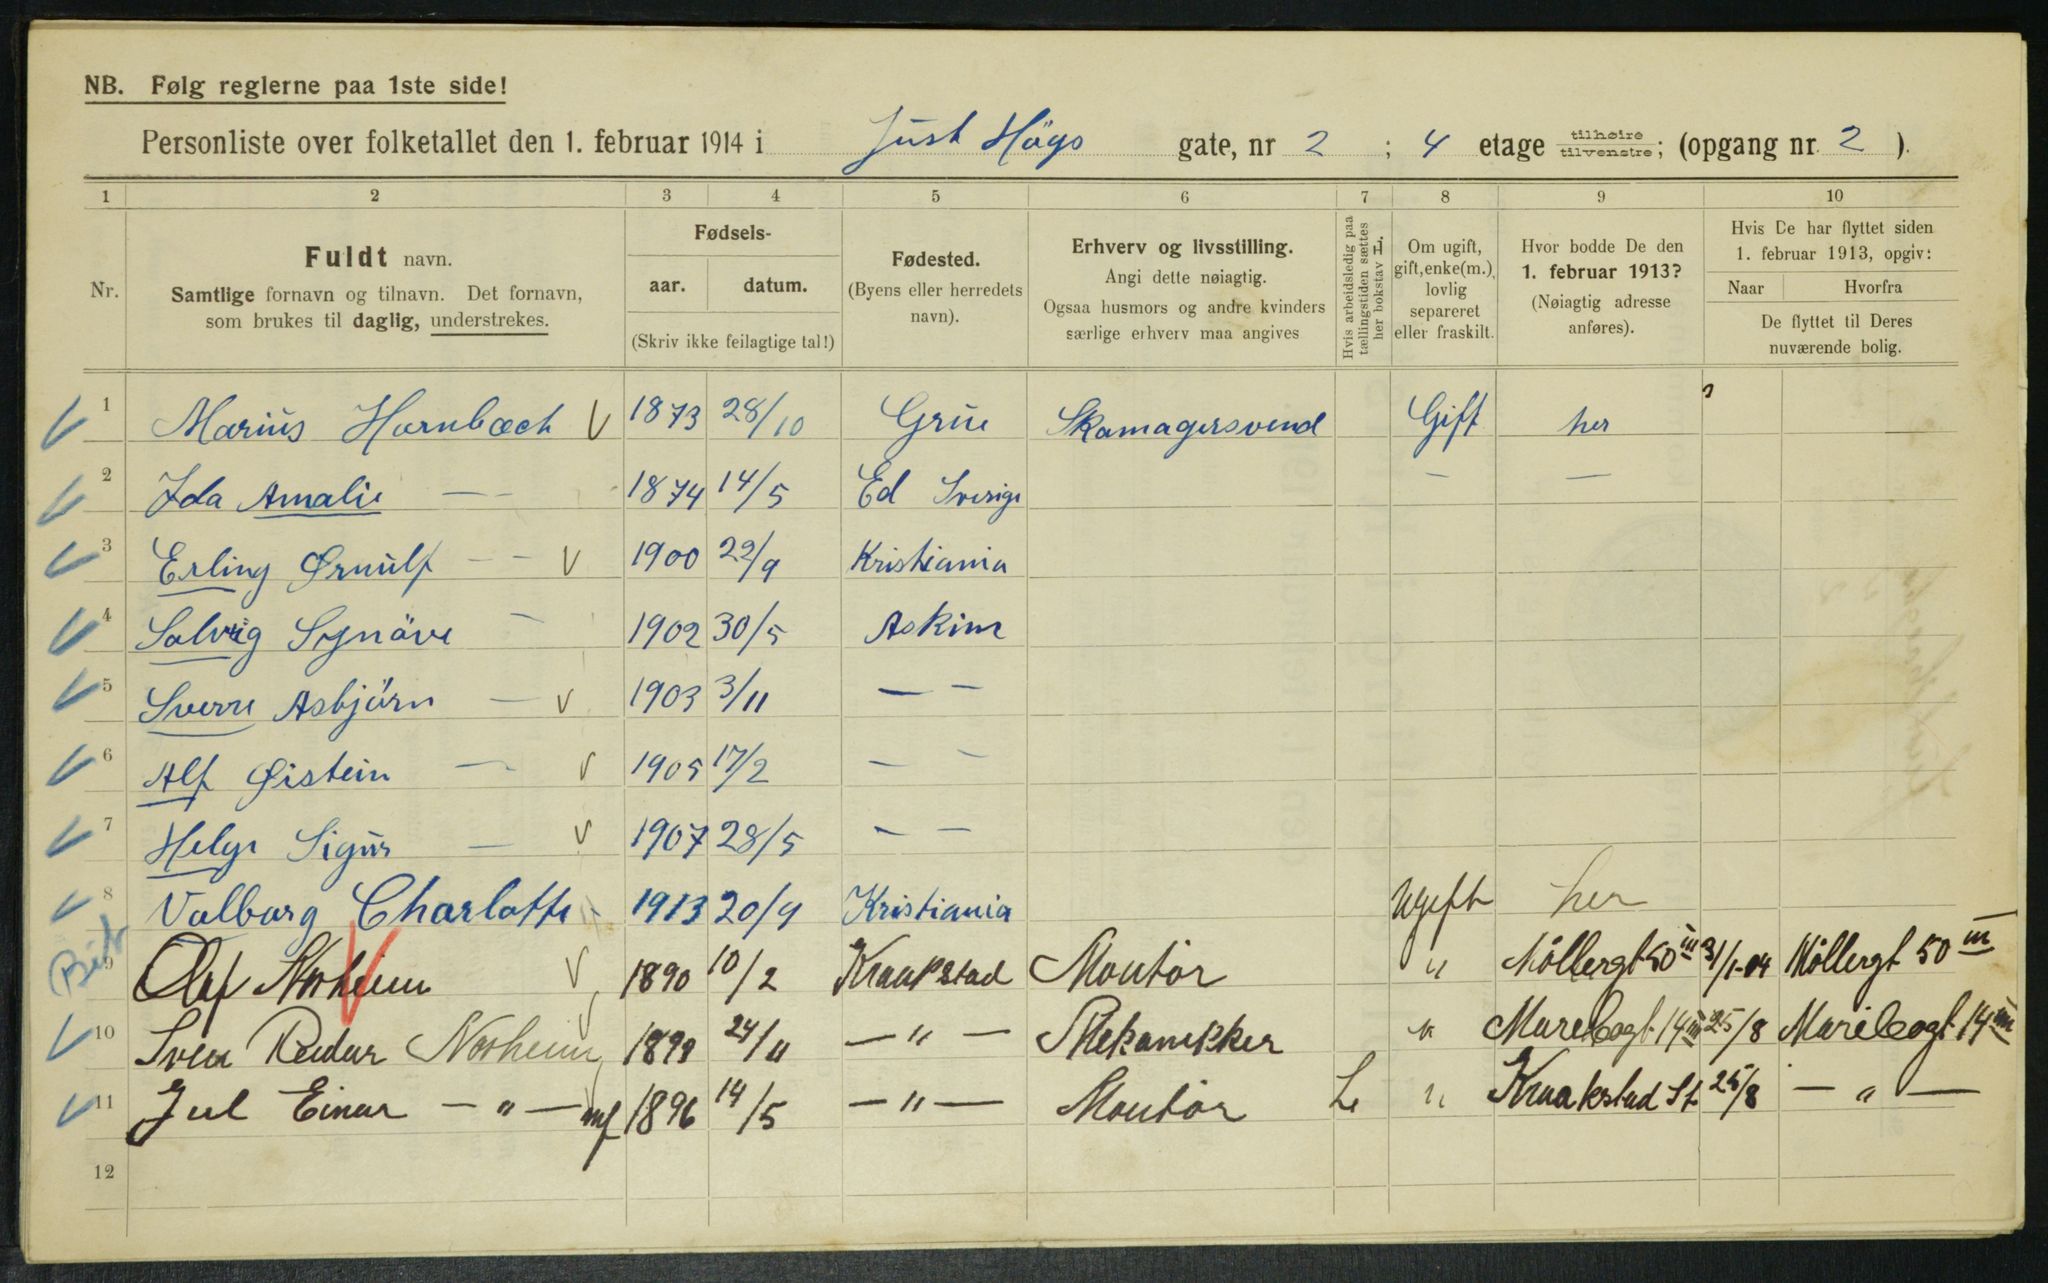 NB. Følg reglerne paa 1ste side!
Personliste over folketallet den 1. februar 1914 i Just Högs gate, nr 2 ; 4 etage tilhøire tilvenstre; (opgang nr. 2 ).
1 2 3 4 5 6 7 8 9 10
Nr.
Fuldt navn.
Samtlige fornavn og tilnavn. Det fornavn,
som brukes til daglig, understrekes.
Fødsels-
aar. datum.
(Skriv ikke feilagtige tal!)
Fødested.
(Byens eller herredets
navn).
Erhverv og livsstilling.
Angi dette nøiagtig.
Ogsaa husmors og andre kvinders
særlige erhverv maa angives
Hvis arbeidsledig paa
tællingstiden sættes
her bokstav L.
Om ugift,
gift, enke(m.),
lovlig
separeret
eller fraskilt.
Hvor bodde De den
1. februar 1913?
(Nøiagtig adresse
anføres).
Hvis De har flyttet siden
1. februar 1913, opgiv:
Naar Hvorfra
De flyttet til Deres
nuværende bolig.
1 Marius Hornbæch 1873 28/10 Grue Skomagersvend Gift her
2 Ida Amalie — - 1874 14/5 Ed Sverige — —
3 Erling Ørnulf - - 1900 22/9 Kristiania
4 Solveig Synöve - 1902 30/5 Askim
5 Sverre Asbjörn - 1903 3/11 — -
6 Alf Øistein - 1905 17/2 - -
7 Helge Sigur - 1907 28/5 - -
8 Valborg Charlotte - 1913 20/9 Kristiania Ugift her
9 Olaf Norheim 1890 10/2 Kraakstad Montör " Möllergt 50 III 31/1-04 Möllergt 50 III
10 Sven Reidar Norheim 1899 24/11 — " — Mekaniker " Mariboegt 14 III 25/8 Mariboegt 14 III
11 Jul Einar — " — mf 1896 14/5 — " — Montör L " Kraakstad St 25/8 — " —
12